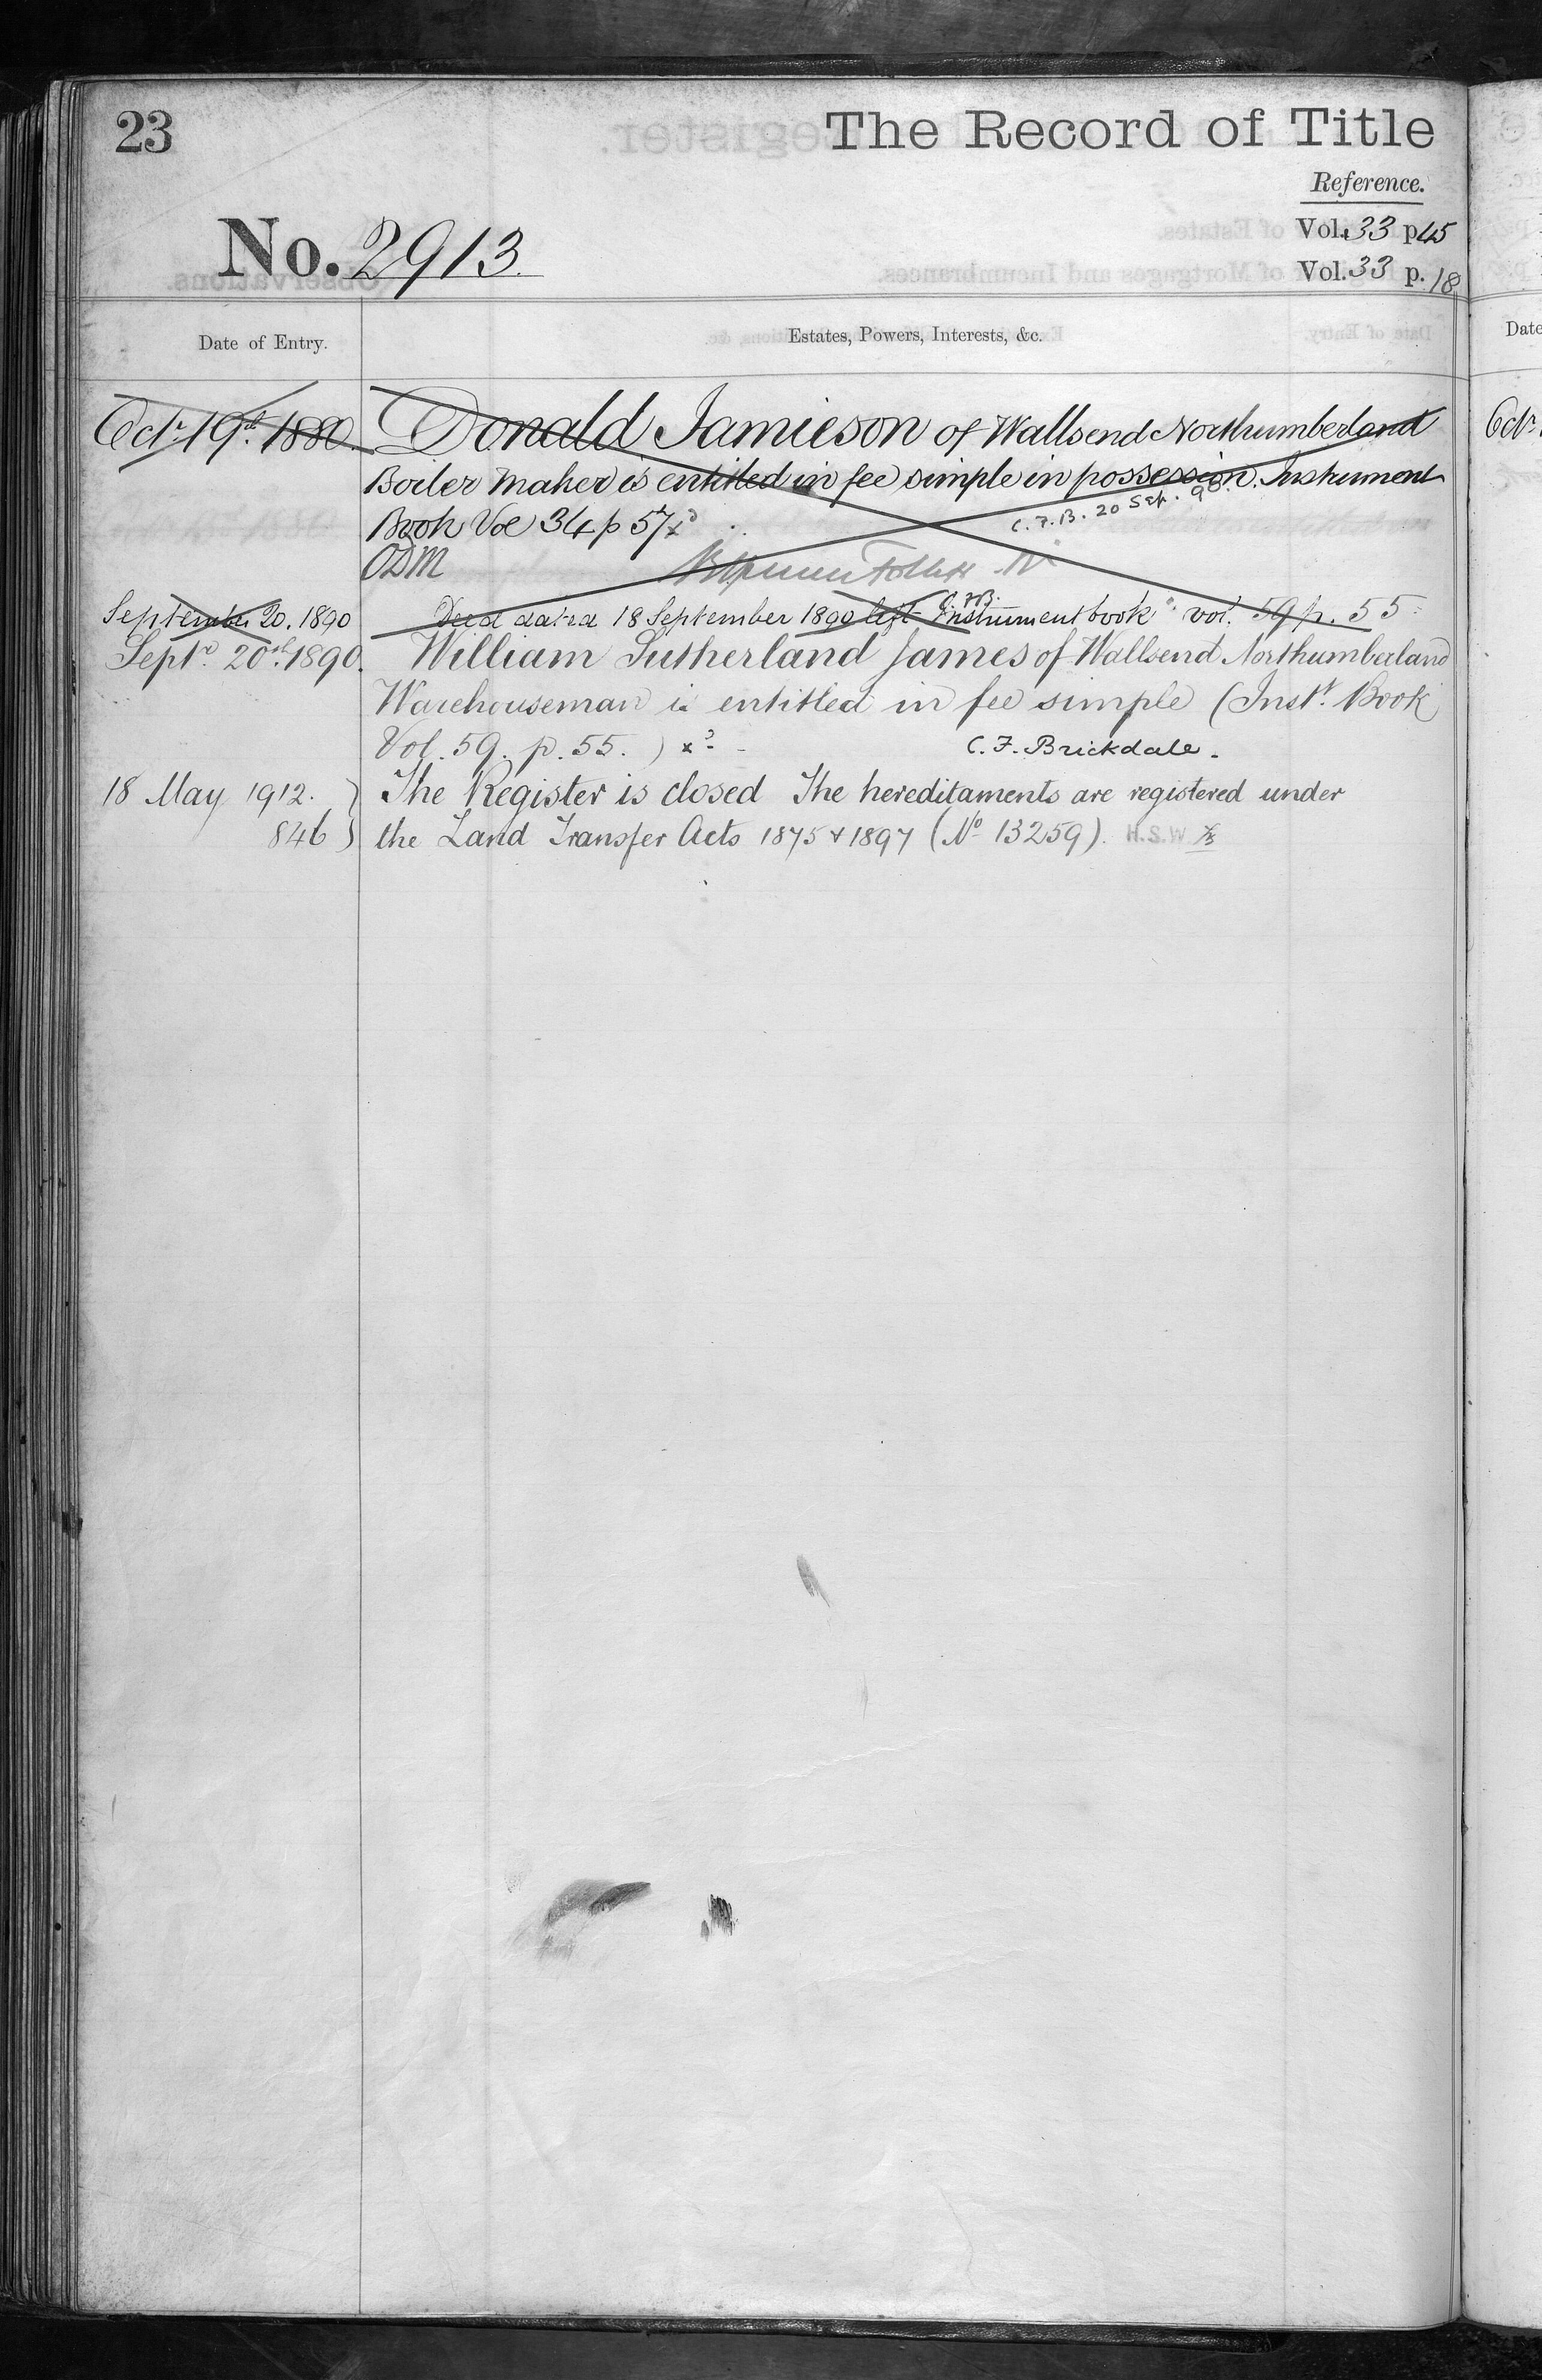 23
The Record of Title
Reference.
No. 2913.
Vol. 33 p 45
Vol. 33 p. 18
Date of Entry.
Estates, Powers, Interests, &c.
Date
Octr. 19th. 1880. Donald Jamieson of Wallsend Northumberland
Octr.
Boiler Maker is entitled in fee simple in possession. Instrument
Book Vol 34 p 57
C.F.B. 20 Sep. 90.
ODM
C.F.B.
September 20. 1890 Deed dated 18 September 1890 left Instrument book vol. 59 p. 55
Septr. 20th. 1890. William Sutherland James of Wallsend Northumberland
Warehouseman is entitled in fee simple (Inst. Book
Vol. 59. p. 55.) C. F. Brickdale.
18 May 1912. } The Register is closed The hereditaments are registered under
846 } the Land Transfer Acts 1875 & 1897 (No 13259). H.S.W